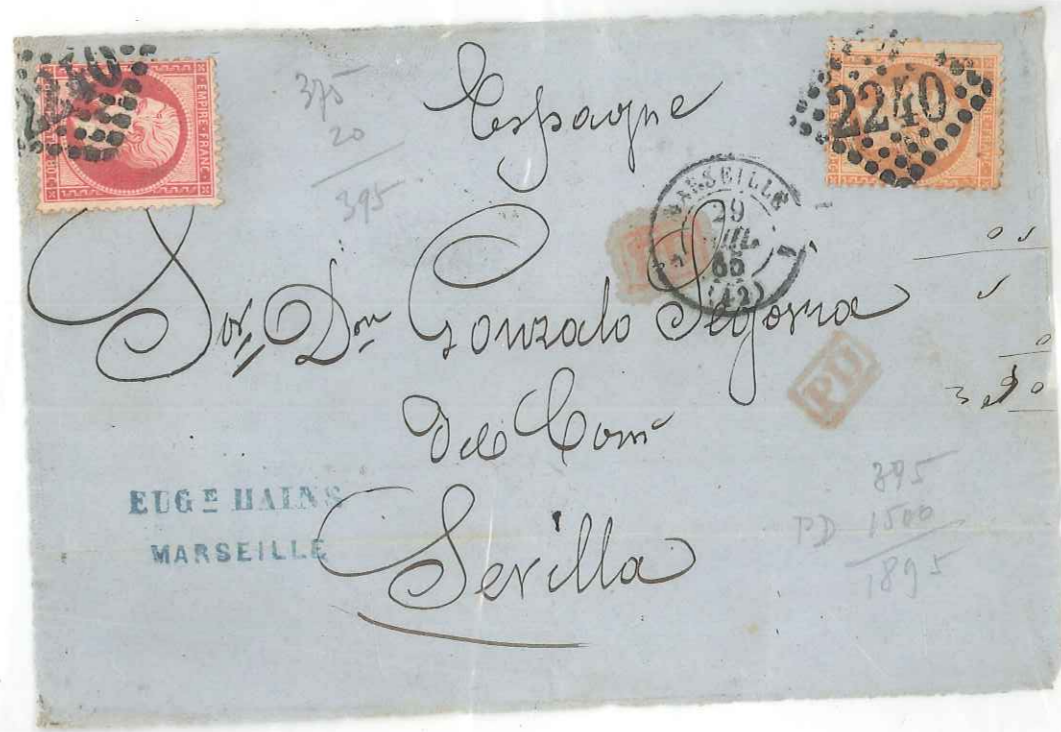 2240
EMPIRE FRANC
2240
375
20
395
Espagne
MARSEILLE
29
JUIL
65
(12)
Sor. Don Gonzalo Segovia
del Com
Sevilla
PD
EUGE HAINS
MARSEILLE
895
PD 1500
1895